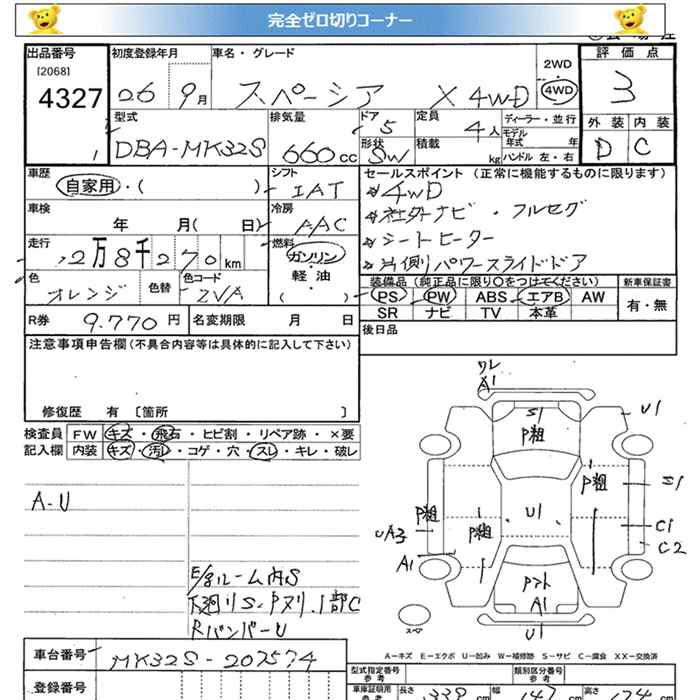 完全ゼロ切りコーナー
出品番号 初度登録年月 車名・グレード 2WD 4WD 評価点
[2068]
4327 26 9月 スペーシア X 4WD 3
1
型式 排気量 ドア 5 定員 4人 ディーラー・並行 外装 内装
DBA-MK32S 660cc 形状 SW 積載 kg モデル年式 年 D C
ハンドル 左・右
車歴 自家用・( ) シフト IAT セールスポイント (正常に機能するものに限ります)
4WD
車検 年 月( 日) 冷房 AAC 社外ナビ・フルセグ
走行 2万8千270km 燃料 ガソリン シートヒーター
軽・油 片側パワースライドドア
( )
色 オレンジ 色替 色コード ZVA
装備品 (純正品に限り○をつけてください) 新車保証書
PS PW ABS エアB AW 有・無
SR ナビ TV 本革
R券 9.770円 名変期限 月 日 後日品
注意事項申告欄(不具合内容等は具体的に記入して下さい)
修復歴 有 〔箇所 〕
検査員 FW キズ・飛石・ヒビ割・リペア跡・×要
記入欄 内装 キズ・汚レ・コゲ・穴・スレ・キレ・破レ
A.U
E/gルーム内S
下廻りS.Pヌリ.1部C
RバンパーU
ワレ
A1
S1
P粗
U1
P粗
S1
P粗
UA3
P粗
U1
C1
C2
A1
Pマト
A1
U1
スペア
A-キズ E-エクボ U-凹み W-補修跡 S-サビ C-腐食 XX-交換済
車台番号 MK32S-207574
型式指定番号 参考 類別区分番号 参考
登録番号 車庫証明用 参考 長さ 339cm 幅 147cm 高さ 174cm